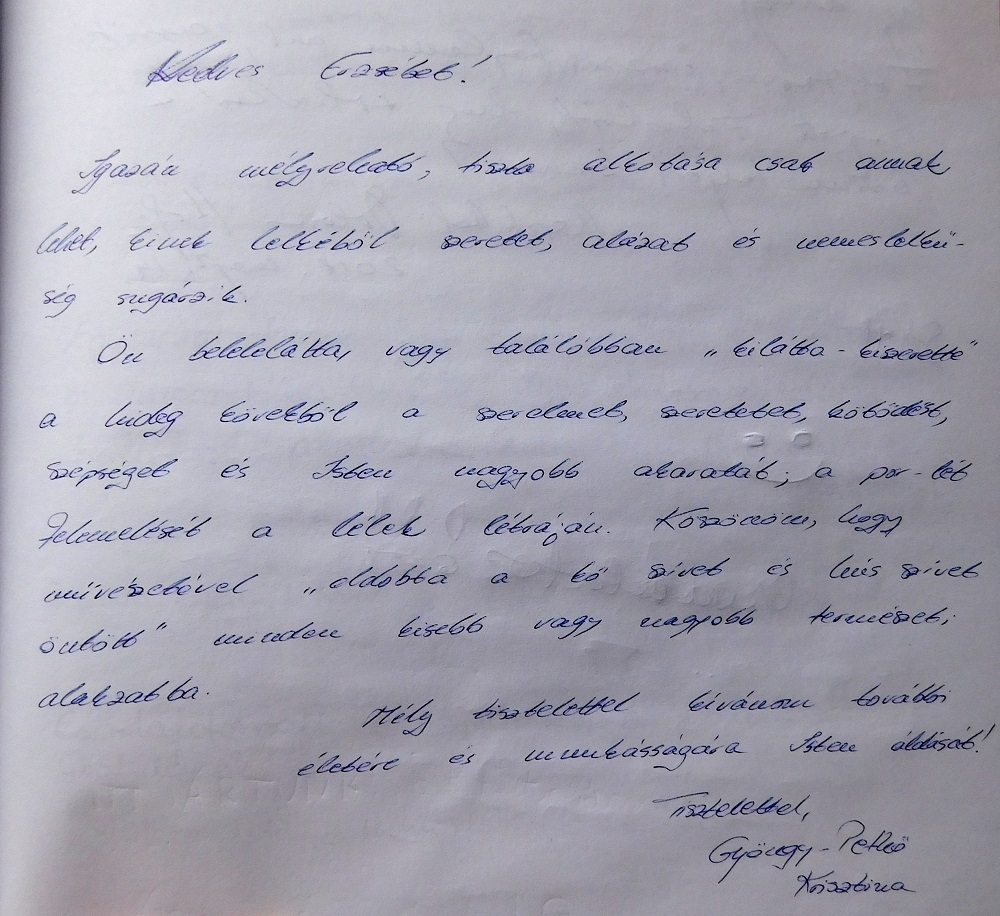 Kedves Erzsébet!
Igazán mélyreható, tiszta alkotása csak annak
lehet, kinek lelkéből szeretet, alázat és nemeslelkű-
ség sugárzik.
Ön belelátta, vagy találóbban „kilátta - kiszerette"
a hideg kövekből a szerelmet, szeretetet, kötődést,
szépséget és Isten nagyobb akaratát; a por-lét
felemelését a lélek létráján. Köszönöm, hogy
művészetével „eldobta a kő szivet és hús szivet
öntött" minden kisebb vagy nagyobb természeti
alakzatba.
Mély tisztelettel kívánom további
életére és munkásságára Isten áldását!
Tisztelettel,
Gyöngy-Petkő
Krisztina